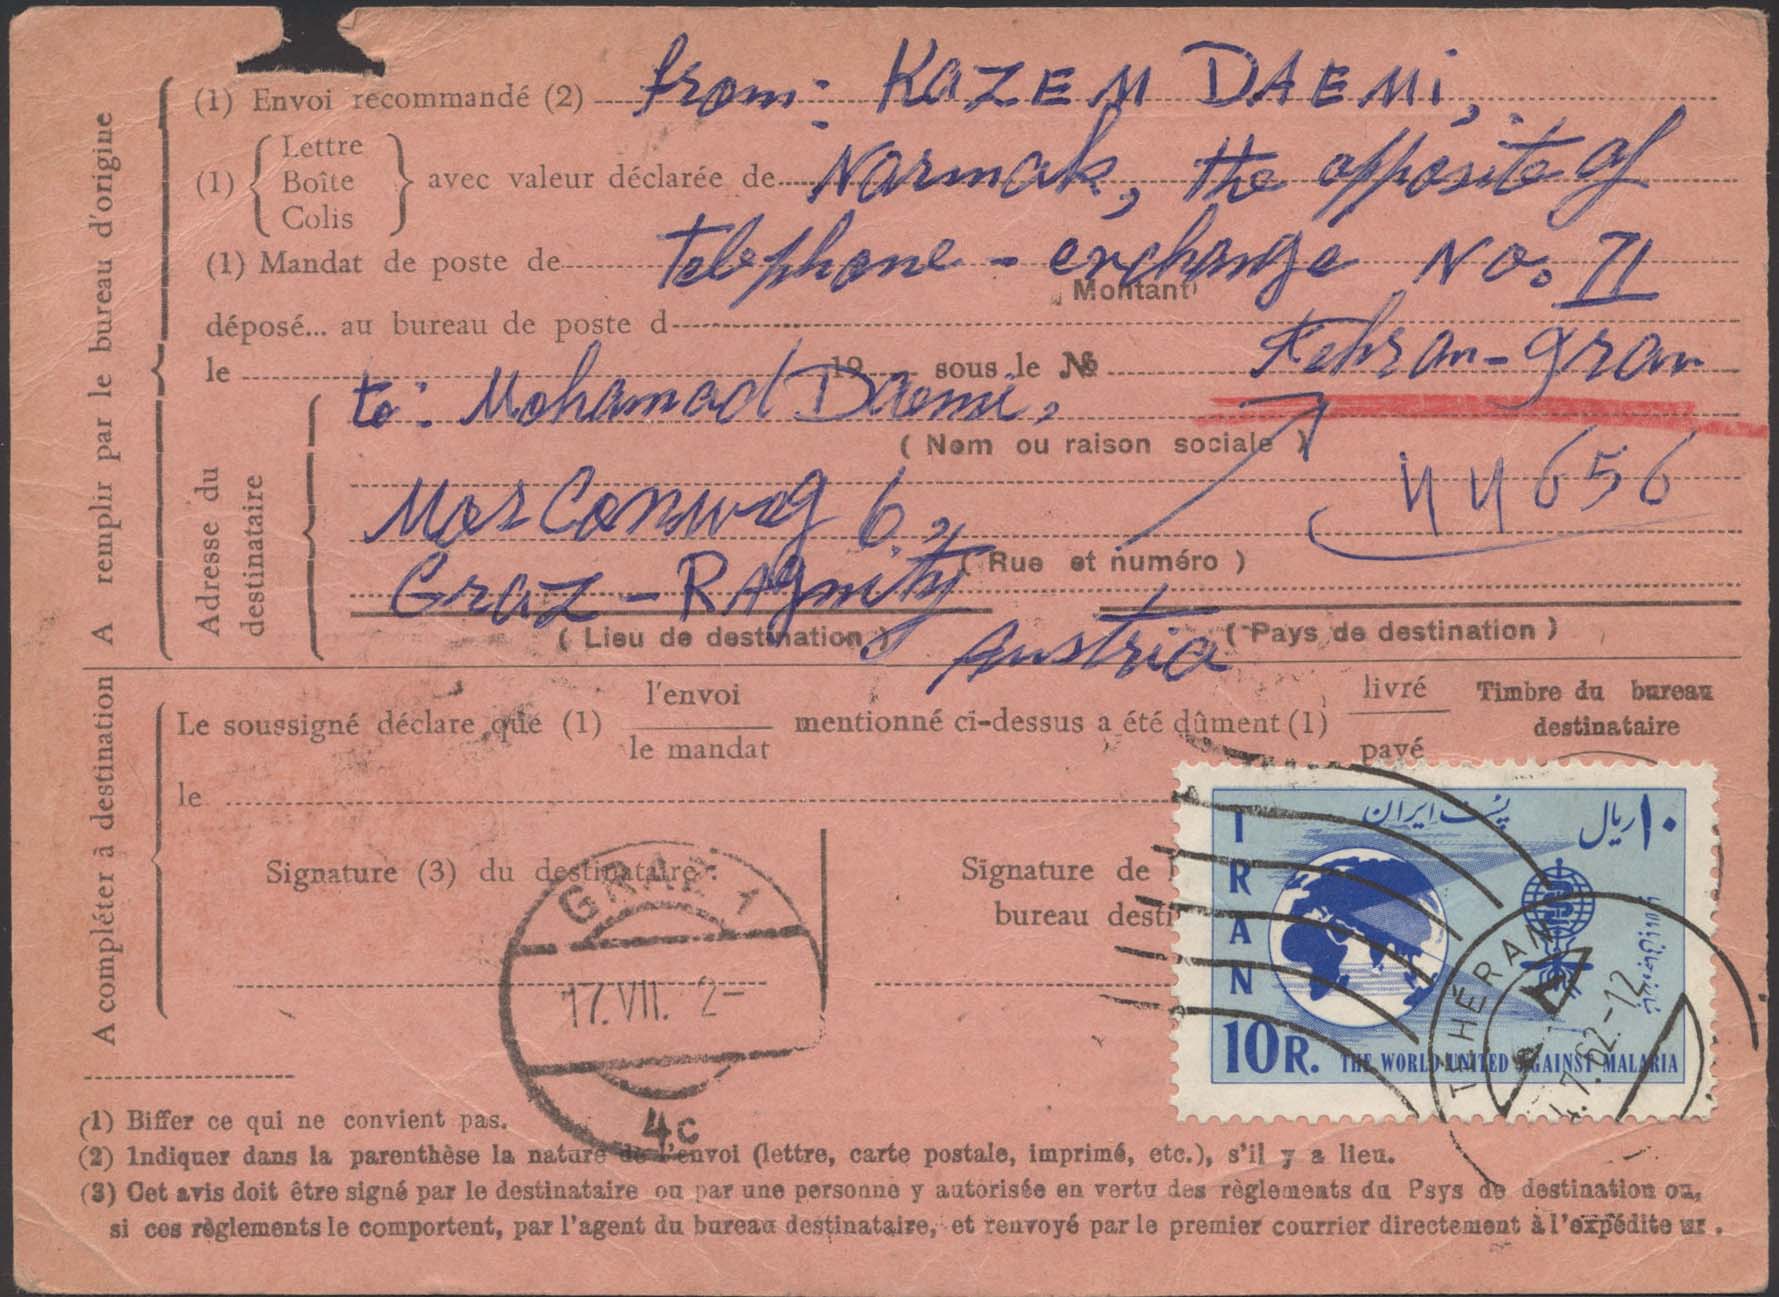 A remplir par le bureau d'origine
(1) Envoi recommandé (2) from: KAZEM DAEMI,
(1) Lettre Boîte Colis avec valeur déclarée de Narmak, the opposite of
(1) Mandat de poste de Telephone - exchange No. II
Montant
déposé... au bureau de poste d
le 19 sous le № Tehran-Iran
Adresse du destinataire
to: Mohamad Daemi,
( Nom ou raison sociale )
44656
6,
( Rue et numéro )
Graz - RAgnitz
( Lieu de destination )
Austria
( Pays de destination )
A compléter à destination
Le soussigné déclare que (1) l'envoi le mandat mentionné ci-dessus a été dûment (1) livré payé
Timbre du bureau
destinataire
le
Signature (3) du destinataire:
Signature de
bureau desti
GRAZ 1
17.VII. 2-
4c
IRAN
پست ایران
۱۰ ریال
10R.
THE WORLD UNITED AGAINST MALARIA
TÉHÉRAN
4.7.62-12
(1) Biffer ce qui ne convient pas.
(2) Indiquer dans la parenthèse la nature de l'envoi (lettre, carte postale, imprimé, etc.), s'il y a lieu.
(3) Cet avis doit être signé par le destinataire ou par une personne y autorisée en vertu des règlements du Psys de destination ou,
si ces règlements le comportent, par l'agent du bureau destinataire, et renvoyé par le premier courrier directement à l'expédite ur.